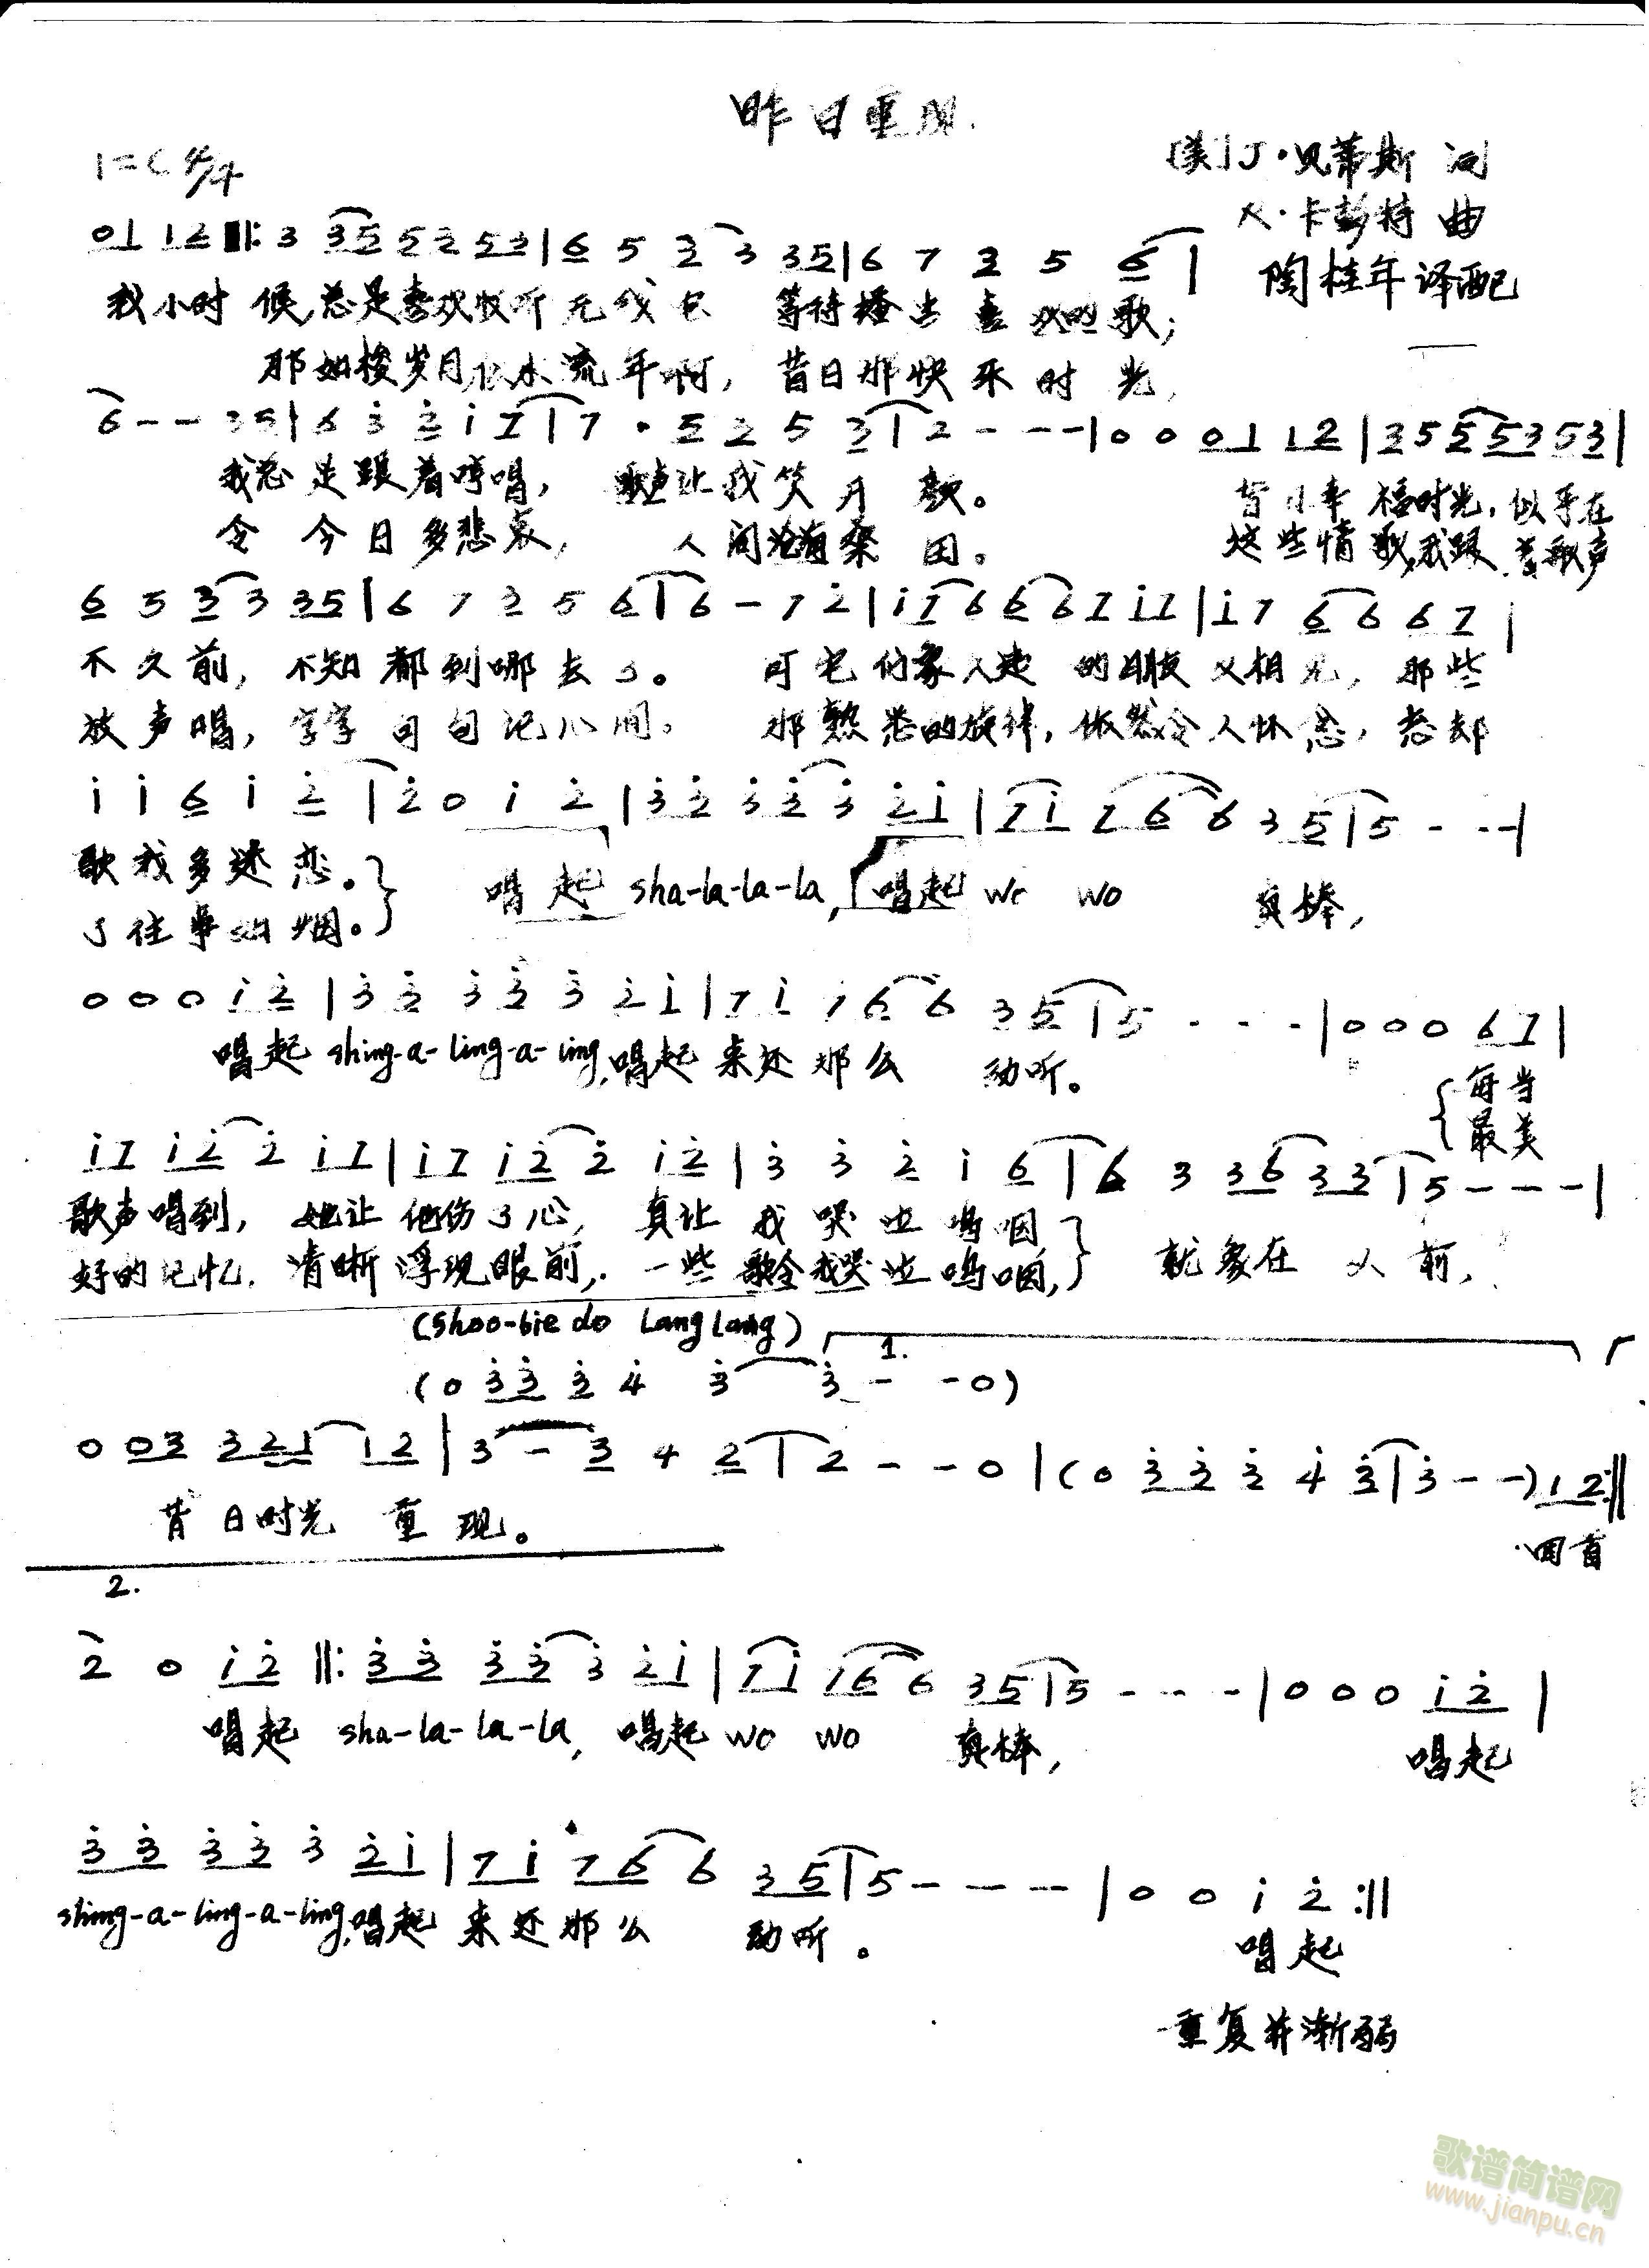 昨日重现.
1=C 4/4
[美]J·贝蒂斯 词
K·卡彭特 曲
陶桂年译配
0 1 1 2 ‖: 3 3 5 5 2 5 3 | 6 5 3 3 3 5 | 6 7 2 5 6 |
我小时候,总是喜欢收听无线电 等待播出喜欢的歌;
那如梭岁月似水流年啊, 昔日那快乐时光,
6 - - 3 5 | 6 3̇ 2̇ 1̇ 7 | 7 · 5 2 5 3 | 2 - - - | 0 0 0 1 1 2 | 3 5 5 5 3 5 3 |
我总是跟着哼唱, 歌声让我笑开颜。 昔日幸福时光,似乎在
令今日多悲哀, 人间沧海桑田。 这些情歌,我跟着歌声
6 5 3 3 3 5 | 6 7 2 5 6 | 6 - 7 2̇ | 1̇ 7 6 6 6 7 1̇ 7 | 1̇ 7 6 6 6 7 |
不久前, 不知都到哪去了。 可它们象久违的朋友又相见, 那些
放声唱, 字字句句记心间。 那熟悉的旋律,依然令人怀念, 忘却
1̇ 1̇ 6 1̇ 2̇ | 2̇ 0 1̇ 2̇ | 3̇ 2̇ 3̇ 2̇ 3̇ 2̇ 1̇ | 7 1̇ 7 6 6 3 5 | 5 - - - |
歌我多迷恋。} 唱起 sha-la-la-la, 唱起 wo wo 真棒,
了往事如烟。}
0 0 0 1̇ 2̇ | 3̇ 2̇ 3̇ 2̇ 3̇ 2̇ 1̇ | 7 1̇ 7 6 6 3 5 | 5 - - - | 0 0 0 6 7 |
唱起 shing-a-ling-a-ling, 唱起来还那么 动听。 {每当
最美
1̇ 7 1̇ 2̇ 2̇ 1̇ 7 | 1̇ 7 1̇ 2̇ 2̇ 1̇ 2̇ | 3̇ 3̇ 2̇ 1̇ 6 | 6 3 3 6 3 3 | 5 - - - |
歌声唱到, 她让他伤了心, 真让我哭泣呜咽} 就象在从前,
好的记忆. 清晰浮现眼前, 一些歌令我哭泣呜咽,}
(Shoo-bie do Lang Lang)
1.
(0 3̇ 3̇ 3̇ 4̇ 3̇ 3̇ - - 0)
0 0 3 3 2 1 1 2 | 3 - 3 4 2 | 2 - - 0 | (0 3̇ 2̇ 2̇ 4̇ 3̇ | 3̇ - -) 1 2 :‖
昔日时光重现。 回首
2.
2 0 1̇ 2̇ ‖: 3̇ 3̇ 3̇ 3̇ 3̇ 2̇ 1̇ | 7 1̇ 7 6 6 3 5 | 5 - - - | 0 0 0 1̇ 2̇ |
唱起 sha-la-la-la, 唱起 wo wo 真棒, 唱起
3̇ 3̇ 3̇ 3̇ 3̇ 2̇ 1̇ | 7 1̇ 7 6 6 3 5 | 5 - - - | 0 0 1̇ 2̇ :‖
shing-a-ling-a-ling, 唱起来还那么 动听。 唱起
重复并渐弱
歌谱简谱网
www.jianpu.cn